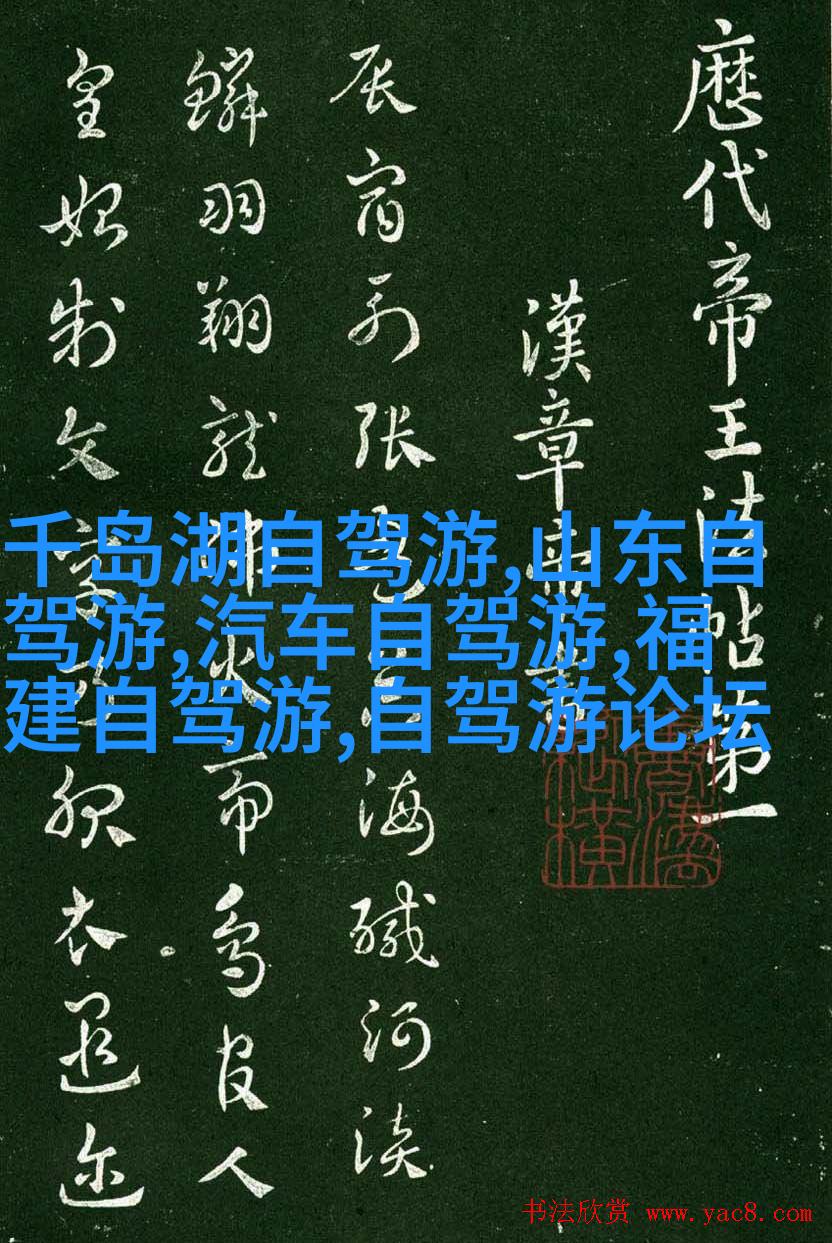 歷代帝王法帖第一
漢章帝書
辰宿列張
海醎河淡
鱗羽翔龍師火帝鳥官人
皇始制文字乃服衣遐迩
千岛湖自驾游,山东自
驾游,汽车自驾游,福
建自驾游,自驾游论坛
书法欣赏 www.yac8.com